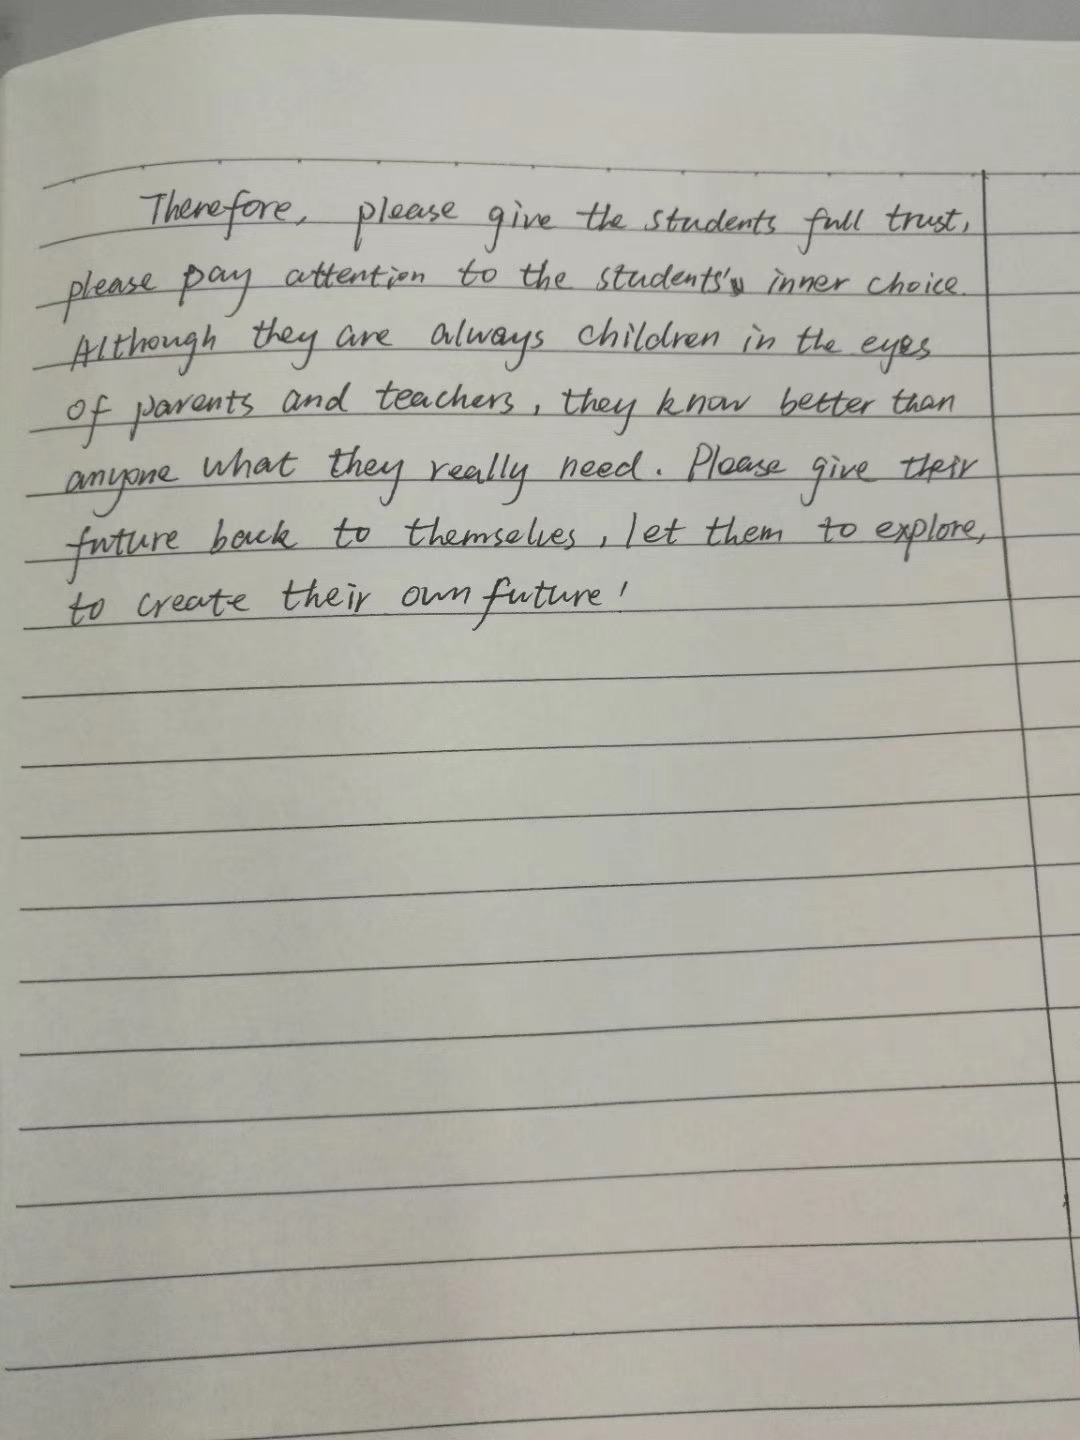 Therefore, please give the students full trust,
please pay attention to the students' inner choice.
Although they are always children in the eyes
of parents and teachers, they know better than
anyone what they really need. Please give their
future back to themselves, let them to explore,
to create their own future!